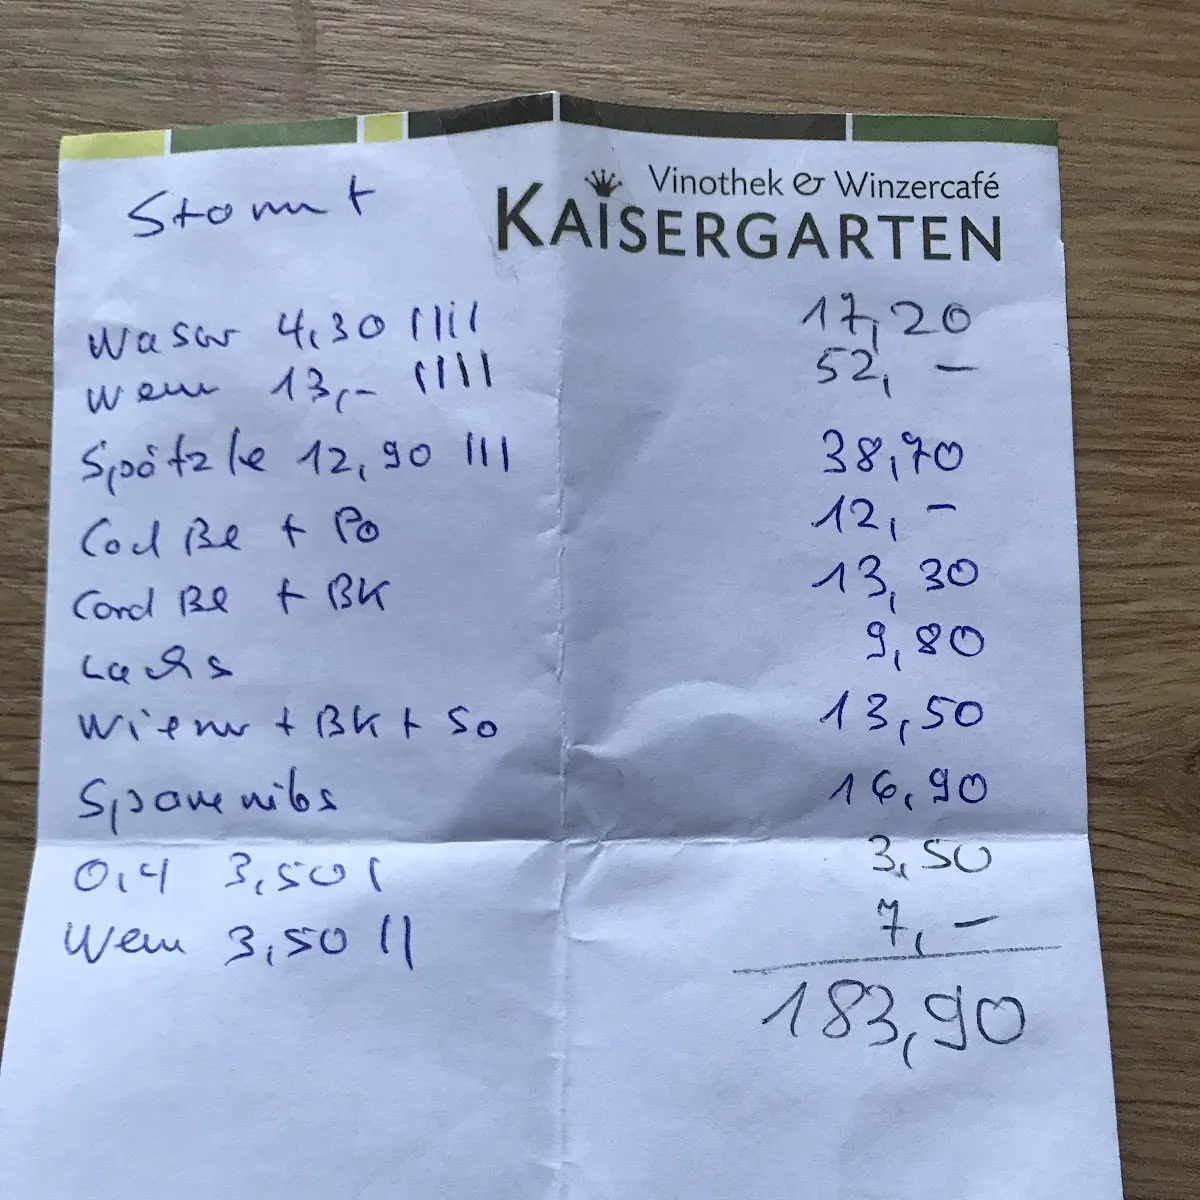 Vinothek & Winzercafé
KAISERGARTEN
Stammt
Wasser 4,30 |||| 17,20
Wein 13,- |||| 52,-
Spätzle 12,90 ||| 38,70
Cord Bl + Po 12,-
Cord Bl + BK 13,30
Lachs 9,80
Wiener + BK + So 13,50
Spareribs 16,90
0,4 3,50 | 3,50
Wein 3,50 || 7,-
183,90